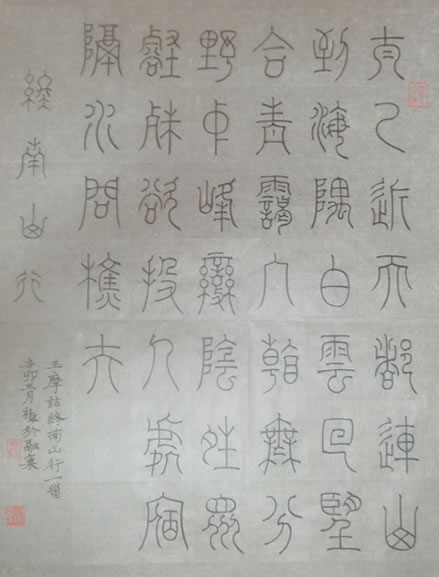 太乙近天都連山
到海隅白雲回望
合青靄入看無分
野中峰變陰晴眾
壑殊欲投人處宿
隔水問樵夫
終南山行
王摩詰終南山行一首
辛卯五月於融